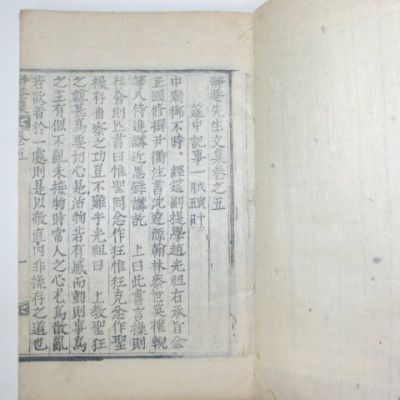 靜菴先生文集卷之五
筵中記事一
中廟御不時 經筵副提學趙光祖右承旨金
正國修撰尹衢注書沈達源翰林蔡世英權輗
等入侍進講近思錄講訖 上曰此書言操則
存舍則亡書曰惟聖罔念作狂惟狂克念作聖
操存省察之功豈不難乎光祖曰 上教聖狂
之說甚爲要心是活物若有感而動則事爲
之主有似不亂未接物時常人之心尤爲散亂
若欲着於一處則是以敬直內非操存之道也